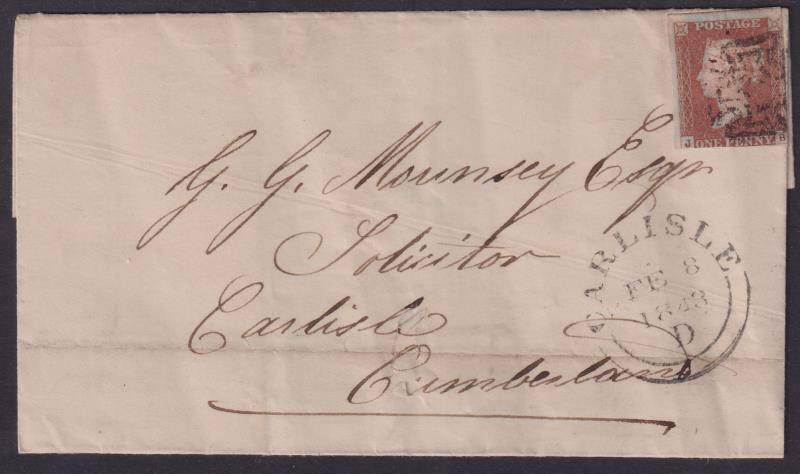 POSTAGE
J ONE PENNY B
G. G. Mounsey Esqr
Solicitor
Carlisle
Cumberland
CARLISLE
FE 8
1843
D